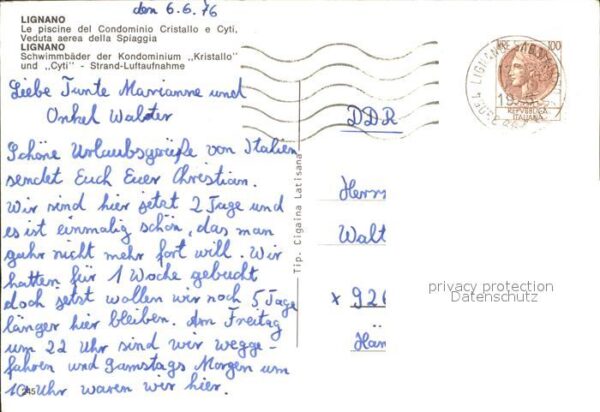 den 6.6.76
LIGNANO
Le piscine del Condominio Cristallo e Cyti.
Veduta aerea della Spiaggia
LIGNANO
Schwimmbäder der Kondominium „Kristallo"
und „Cyti" - Strand-Luftaufnahme
Liebe Tante Marianne und
Onkel Walter
Schöne Urlaubsgrüße von Italien
sendet Euch Euer Christian.
Wir sind hier jetzt 2 Tage und
es ist einmalig schön, das man
gahr nicht mehr fort will. Wir
hatten für 1 Woche gebucht
doch jetzt wollen wir noch 5 Tage
länger hier bleiben. Am Freitag
um 22 Uhr sind wir wegge-
fahren und Samstags Morgen um
10 Uhr waren wir hier.
Tip. Cigaina Latisana
100
REPVBBLICA
ITALIANA
LIGNANO
DDR
Herrn
Walt
x 926
Hän
privacy protection
Datenschutz